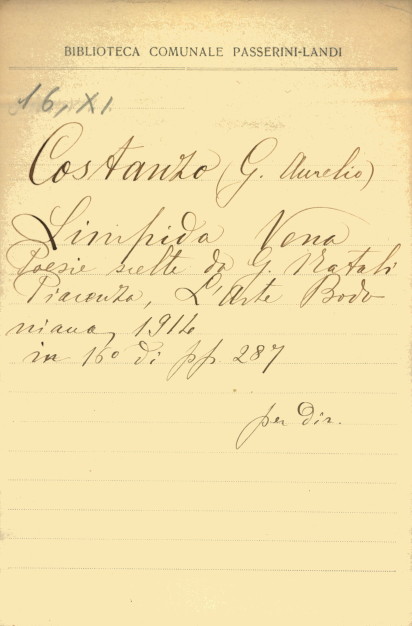 BIBLIOTECA COMUNALE PASSERINI-LANDI
16, XI
Costanzo (G. Aurelio)
Limpida Vena
Poesie scelte da G. Natali
Piacenza, L'Arte Bodo
niana, 1914
in 16° di pp 287
per dir.